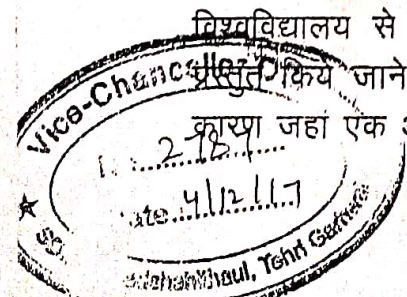 विश्वविद्यालय से
प्रस्तुत किये जाने
कारण जहां एक
Vice-Chancellor
2789
4/12/17
Tehri Garhwal